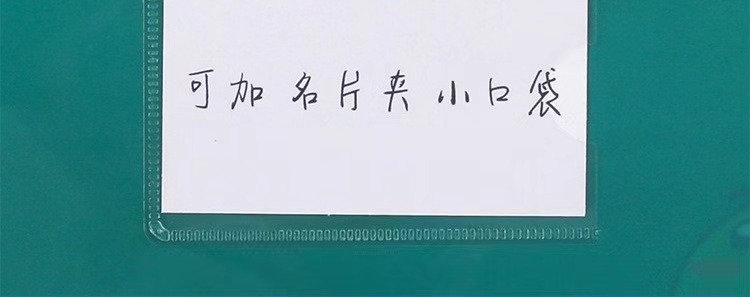 可加名片夹小口袋